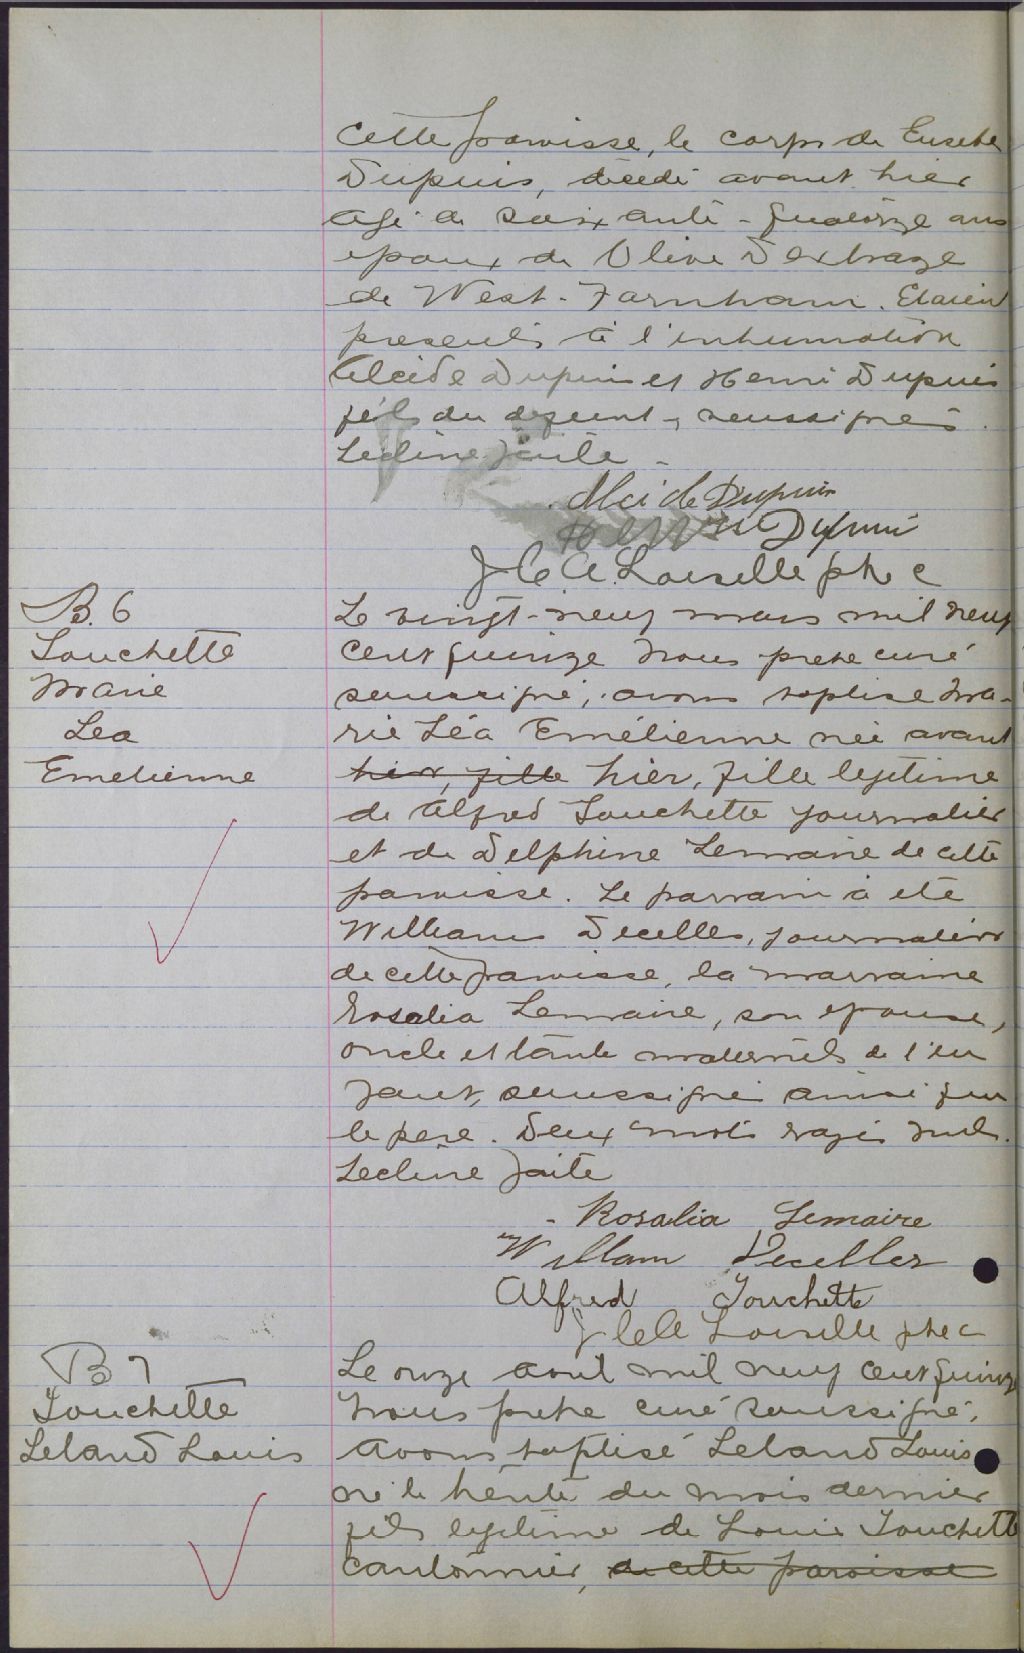 cette paroisse, le corps de Eusebe
Dupuis, décédé avant hier
agé de soixante-quatorze ans
epoux de Olive Dextraze
de West-Farnham. Etaient
presents à l'inhumation
Alcide Dupuis et Henri Dupuis
fils du defunt, soussignés.
Lecture faite
Alcide Dupuis
Henri Dupuis
J C A Loiselle ptre c
B. 6
Touchette
Marie
Lea
Emelienne
Le vingt-neuf mars mil neuf
cent quinze nous pretre curé
soussigné, avons baptise Ma-
rie Léa Emélienne née avant
hier, fille hier, fille legitime
de Alfred Touchette journalier
et de Delphine Lemaire de cette
paroisse. Le parrain a été
William Decelles, journalier
de cette paroisse, la marraine
Rosalia Lemaire, son epouse,
oncle et tante maternels de l'en
fant, soussignés ainsi que
le pere. Deux mots rayés nuls.
Lecture faite
Rosalia Lemaire
William Decelles
Alfred Touchette
J C A Loiselle ptre c
B 7
Touchette
Leland Louis
Le onze avril mil neuf cent quinze
Nous pretre curé soussigné,
avons baptisé Leland Louis
né le trente du mois dernier
fils legitime de Louis Touchette
cantonnier, de cette paroisse